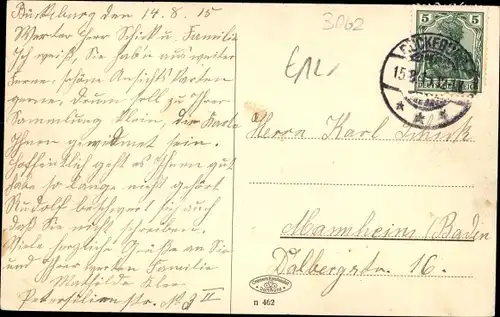 Bückeburg den 14.8.15
Werter Herr Schick u. Familie
Ich weiß, Sie hab'n aus weiter
Ferne, schöne Ansichtskarten
gerne, Drum soll zu Ihrer
Sammlung klein, die Karte
Ihnen gewidmet sein.
Hoffentlich geht es Ihnen gut
habe so lange nicht gehört
Rudolf beschwert sich auch
daß Sie nicht schreiben.
Viele herzliche Grüße an Sie
und Ihrer werten Familie
Mathilde
Petersilienstr. No 3 II
3862
5 5
BÜCKEBURG
15.8.
Herrn Karl
Mannheim (Baden
Dalbergstr. 16.
n 462